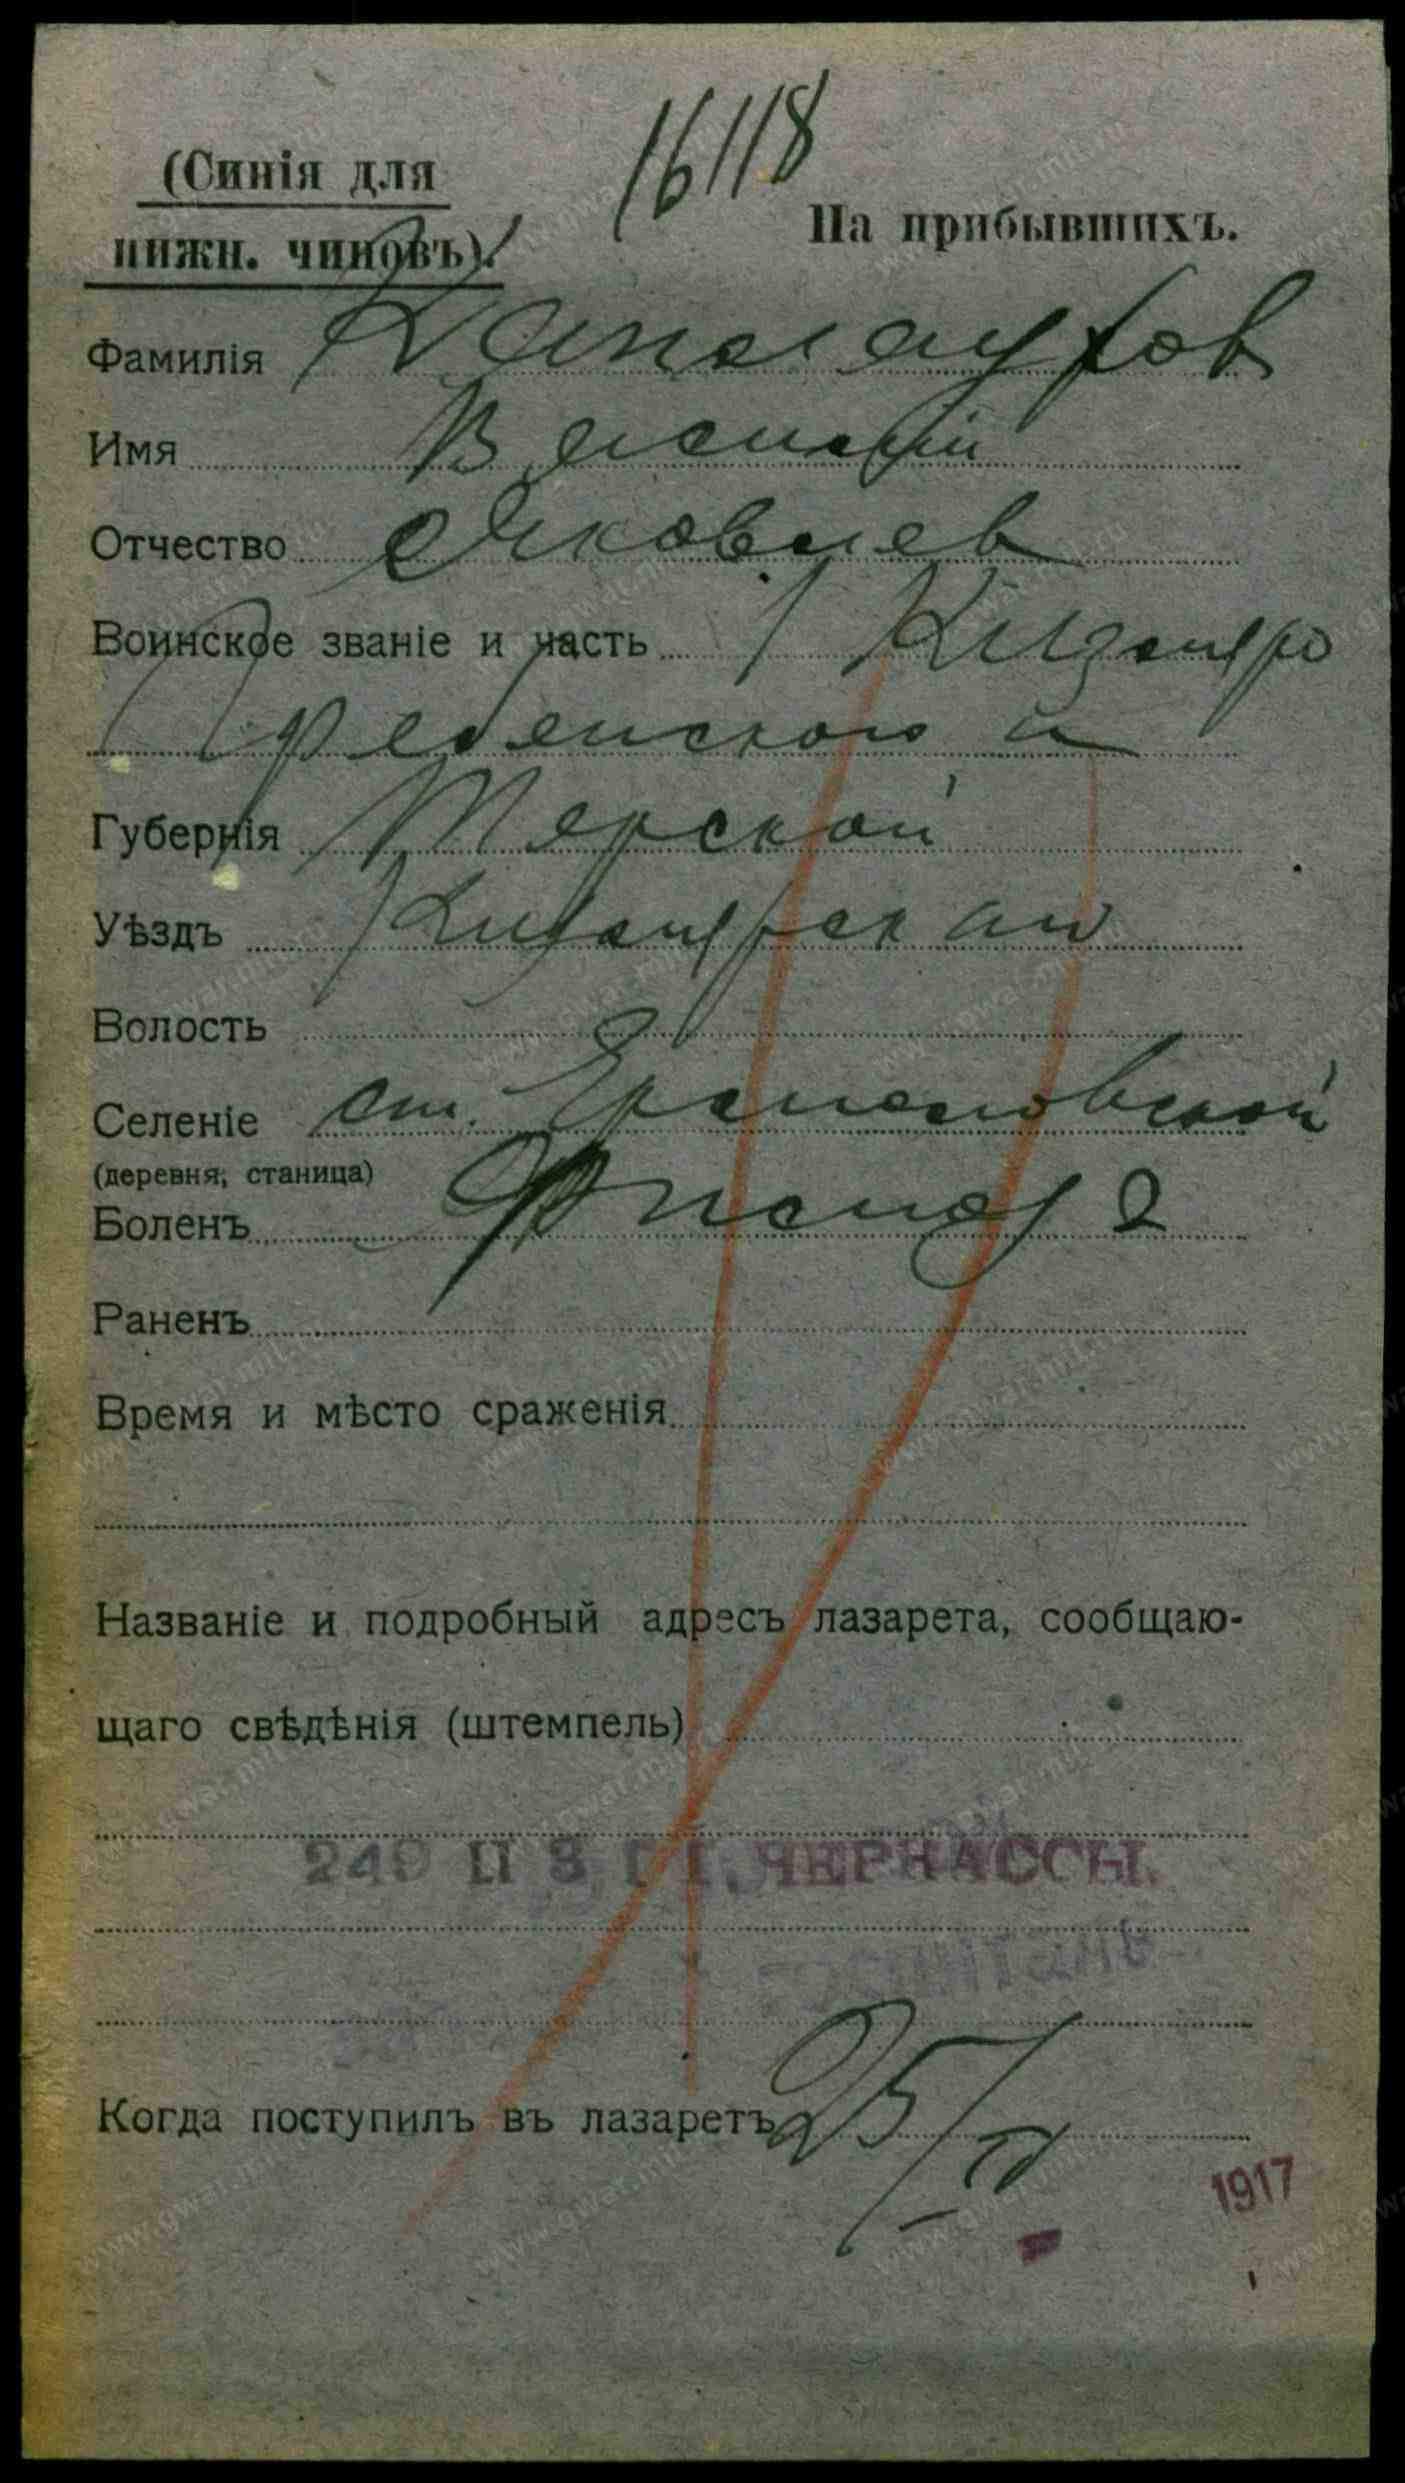 16118
(Синія для
нижн. чиновъ).
На прибывшихъ.
Фамилія
Имя Василій
Отчество Яковлев
Воинское званіе и часть 1 Кизляро
Гребенского п
Губернія Терской
Уѣздъ Кизлярскаго
Волость
Селеніе ст. Ермоловской
(деревня, станица)
Боленъ
Раненъ
Время и мѣсто сраженія
Названіе и подробный адресъ лазарета, сообщаю-
щаго свѣдѣнія (штемпель)
ЧЕРКАССЫ.
Когда поступилъ въ лазаретъ 25/IV
1917